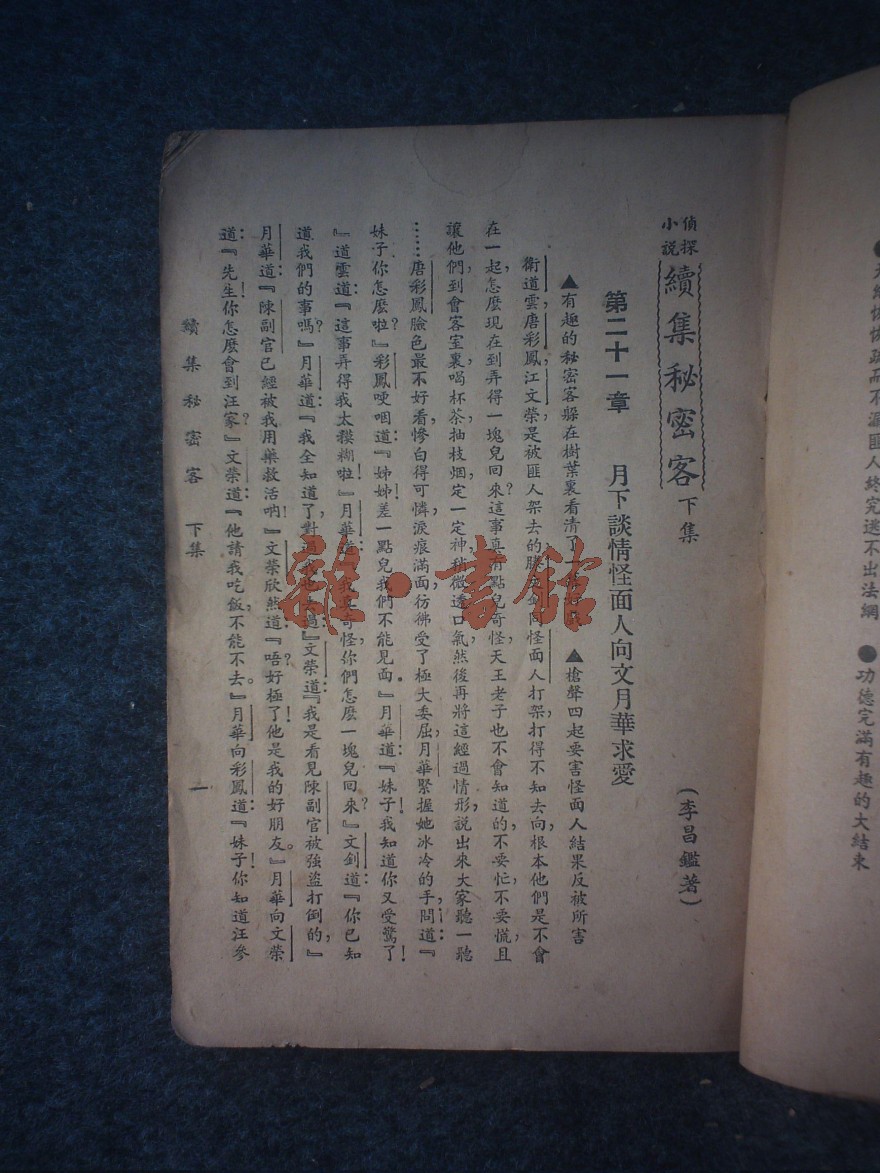 偵探小說 續集秘密客 下集
(李昌鑑著)
第二十一章 月下談情怪面人向文月華求愛
▲有趣的秘密客躱在樹葉裏看清了 ▲槍聲四起要害怪面人結果反被所害
衛道雲,唐彩鳳,江文榮是被匪人架去的,滕 同怪面人打架,打得不知去向,根本他們是不會
在一起,怎麼現在到弄得一塊兒回來?這事真有點兒奇怪,天王老子也不會知道的,不要忙,不要慌,且
讓他們,到會客室裏喝杯茶,抽枝烟,定一定神,稍微透口氣,然後再將這經過情形,說出來大家聽一聽
……唐彩鳳臉色最不好看,慘白得可憐,淚痕滿面,彷彿受了極大委屈,月華緊握她冰冷的手,問道:『
妹子你怎麼啦?』彩鳳哽咽道:『姊姊!差一點兒我們不能見面。』月華道:『妹子!我知道你又受驚了!
』道雲道:『這事弄得我太糢糊啦!』月華道:『我真奇怪,你們怎麼一塊兒回來?』文釗道:『你已知
道我們的事嗎?』月華道:『我全知道了,對過 』文榮道:『我是看見陳副官被強盜打倒的,』
月華道:『陳副官已經被我用藥救活吶!』文榮欣然道:『唔?好極了!他是我的好朋友。』月華向文榮
道:『先生!你怎麼會到汪家?』文榮道:『他請我吃飯,不能不去。』月華向彩鳳道:『妹子!你知道汪參
續集秘密客 下集
一
雜·書館
匪人終究逃不出法網
●功德完滿有趣的大結束